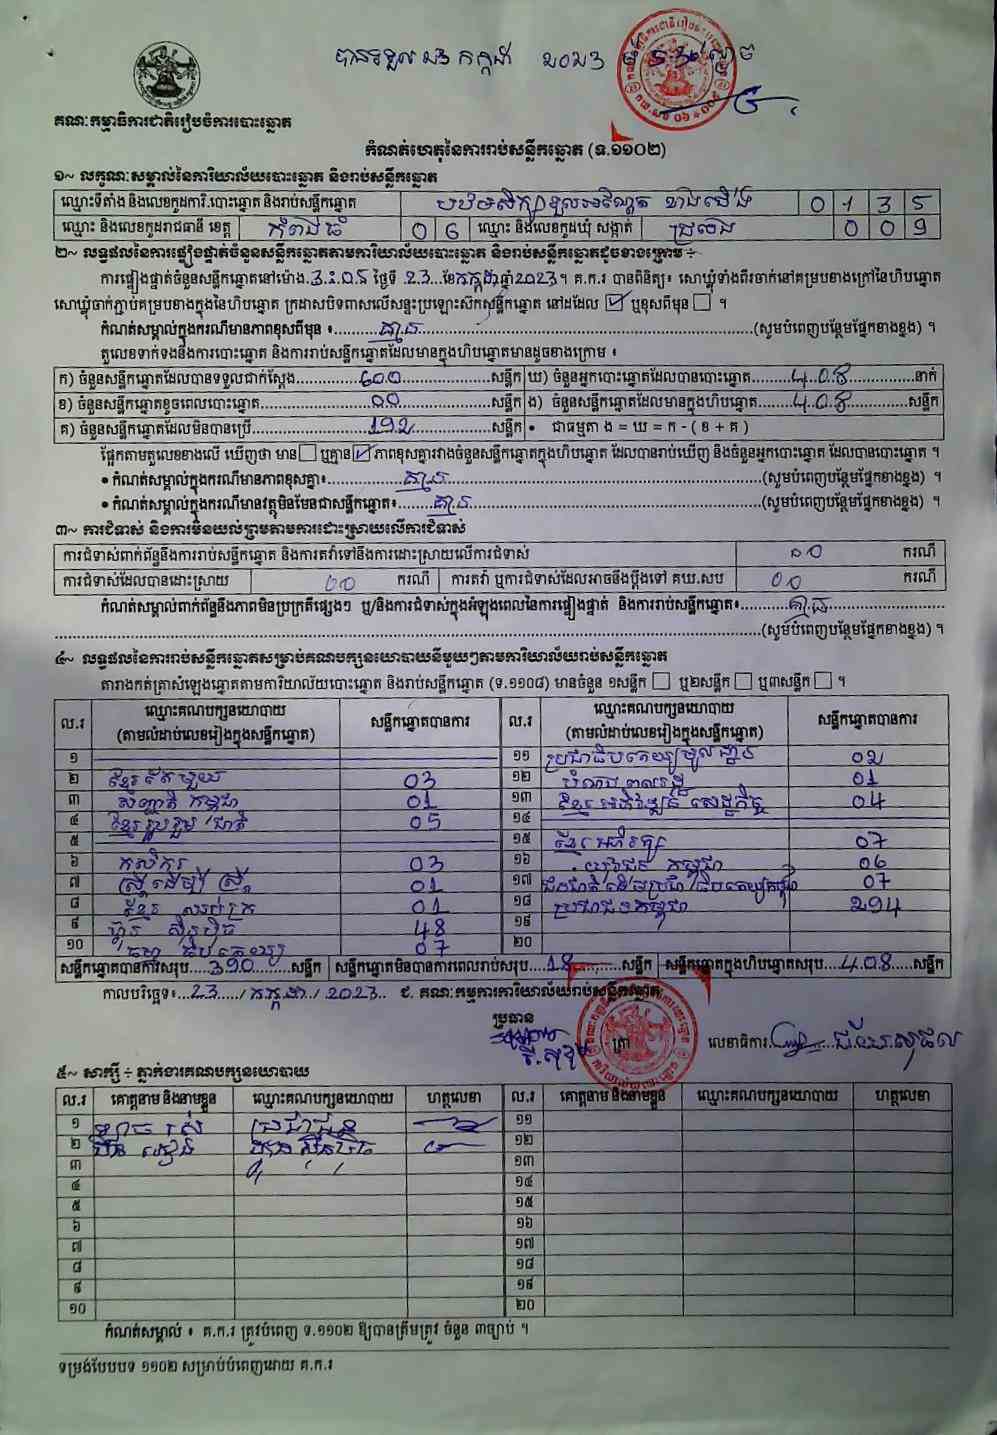 បានទទួល ២៣ កក្កដា 2023
គណៈកម្មាធិការជាតិរៀបចំការបោះឆ្នោត
កំណត់ហេតុនៃការរាប់សន្លឹកឆ្នោត (ទ.១១០២)
១~ លក្ខណៈសម្គាល់នៃការិយាល័យបោះឆ្នោត និងរាប់សន្លឹកឆ្នោត
ឈ្មោះទីតាំង និងលេខកូដការិ.បោះឆ្នោត និងរាប់សន្លឹកឆ្នោត 0 1 3 5
ឈ្មោះ និងលេខកូដរាជធានី ខេត្ត កំពង់ធំ 0 6 ឈ្មោះ និងលេខកូដឃុំ សង្កាត់ 0 0 9
២~ លទ្ធផលនៃការផ្ទៀងផ្ទាត់ចំនួនសន្លឹកឆ្នោតតាមការិយាល័យបោះឆ្នោត និងរាប់សន្លឹកឆ្នោតដូចខាងក្រោម ÷
ការផ្ទៀងផ្ទាត់ចំនួនសន្លឹកឆ្នោតនៅម៉ោង.3:05 ថ្ងៃទី.23...ខែកក្កដាឆ្នាំ2023។ គ.ក.រ បានពិនិត្យ៖ សោឃ្លុំទាំងពីរចាក់នៅគម្របខាងក្រៅនៃហិបឆ្នោត
សោឃ្លុំចាក់ភ្ជាប់គម្របខាងក្នុងនៃហិបឆ្នោត ក្រដាសបិទពាសលើសន្ទះប្រឡោះស៊កសន្លឹកឆ្នោត នៅដដែល ☑ ឬខុសពីមុន ☐ ។
កំណត់សម្គាល់ក្នុងករណីមានភាពខុសពីមុន ៖..........គ្មាន..........(សូមបំពេញបន្ថែមផ្នែកខាងខ្នង) ។
តួលេខទាក់ទងនឹងការបោះឆ្នោត និងការរាប់សន្លឹកឆ្នោតដែលមានក្នុងហិបឆ្នោតមានដូចខាងក្រោម ៖
ក) ចំនួនសន្លឹកឆ្នោតដែលបានទទួលជាក់ស្តែង..........600..........សន្លឹក ឃ) ចំនួនអ្នកបោះឆ្នោតដែលបានបោះឆ្នោត..........408..........នាក់
ខ) ចំនួនសន្លឹកឆ្នោតខូចពេលបោះឆ្នោត..........00..........សន្លឹក ង) ចំនួនសន្លឹកឆ្នោតដែលមានក្នុងហិបឆ្នោត..........408..........សន្លឹក
គ) ចំនួនសន្លឹកឆ្នោតដែលមិនបានប្រើ..........192..........សន្លឹក • ជាធម្មតា ង = ឃ = ក - ( ខ + គ )
ផ្អែកតាមតួលេខខាងលើ ឃើញថា មាន ☐ ឬគ្មាន ☑ ភាពខុសគ្នារវាងចំនួនសន្លឹកឆ្នោតក្នុងហិបឆ្នោត ដែលបានរាប់ឃើញ និងចំនួនអ្នកបោះឆ្នោត ដែលបានបោះឆ្នោត ។
• កំណត់សម្គាល់ក្នុងករណីមានភាពខុសគ្នា៖..........គ្មាន..........(សូមបំពេញបន្ថែមផ្នែកខាងខ្នង) ។
• កំណត់សម្គាល់ក្នុងករណីមានវត្ថុមិនមែនជាសន្លឹកឆ្នោត៖..........គ្មាន..........(សូមបំពេញបន្ថែមផ្នែកខាងខ្នង) ។
៣~ ការជំទាស់ និងការមិនយល់ព្រមតាមការដោះស្រាយលើការជំទាស់
ការជំទាស់ពាក់ព័ន្ធនឹងការរាប់សន្លឹកឆ្នោត និងការតវ៉ាទៅនឹងការដោះស្រាយលើការជំទាស់ 00 ករណី
ការជំទាស់ដែលបានដោះស្រាយ 00 ករណី ការតវ៉ា ឬការជំទាស់ដែលអាចនឹងប្តឹងទៅ គឃ.សប 00 ករណី
កំណត់សម្គាល់ពាក់ព័ន្ធនឹងភាពមិនប្រក្រតីផ្សេងៗ ឬ/និងការជំទាស់ក្នុងអំឡុងពេលនៃការផ្ទៀងផ្ទាត់ និងការរាប់សន្លឹកឆ្នោត៖..........គ្មាន..........
..........(សូមបំពេញបន្ថែមផ្នែកខាងខ្នង) ។
៤~ លទ្ធផលនៃការរាប់សន្លឹកឆ្នោតសម្រាប់គណបក្សនយោបាយនីមួយៗតាមការិយាល័យរាប់សន្លឹកឆ្នោត
តារាងកត់ត្រាសំឡេងឆ្នោតតាមការិយាល័យបោះឆ្នោត និងរាប់សន្លឹកឆ្នោត (ទ.១១០៨) មានចំនួន ១សន្លឹក ☐ ឬ២សន្លឹក ☐ ឬ៣សន្លឹក ☐ ។
ល.រ ឈ្មោះគណបក្សនយោបាយ សន្លឹកឆ្នោតបានការ ល.រ ឈ្មោះគណបក្សនយោបាយ សន្លឹកឆ្នោតបានការ
(តាមលំដាប់លេខរៀងក្នុងសន្លឹកឆ្នោត) (តាមលំដាប់លេខរៀងក្នុងសន្លឹកឆ្នោត)
១ ១១ ប្រជាធិបតេយ្យមូលដ្ឋាន 02
២ ខ្មែរតែមួយ 03 ១២ បំណងពលរដ្ឋ 01
៣ សញ្ជាតិកម្ពុជា 01 ១៣ ខ្មែរអភិវឌ្ឍន៍សេដ្ឋកិច្ច 04
៤ ខ្មែររួបរួមជាតិ 05 ១៤
៥ ១៥ ខ្មែរអភិរក្ស 07
៦ កសិករ 03 ១៦ យុវជនកម្ពុជា 06
៧ ស្ត្រីដើម្បីស្ត្រី 01 ១៧ ជនជាតិដើមប្រជាធិបតេយ្យកម្ពុជា 07
៨ ខ្មែរឈប់ក្រ 01 ១៨ ប្រជាជនកម្ពុជា 294
៩ ហ៊្វុនស៊ិនប៉ិច 48 ១៩
១០ ធម្មាធិបតេយ្យ 07 ២០
សន្លឹកឆ្នោតបានការសរុប....390........សន្លឹក សន្លឹកឆ្នោតមិនបានការពេលរាប់សរុប...18........សន្លឹក សន្លឹកឆ្នោតក្នុងហិបឆ្នោតសរុប...408.....សន្លឹក
កាលបរិច្ឆេទ៖...23...../កក្កដា/2023.. ជ. គណៈកម្មការការិយាល័យរាប់សន្លឹកឆ្នោត
ប្រធាន
ត្រា លេខាធិការ
៥~ សាក្សី ÷ ភ្នាក់ងារគណបក្សនយោបាយ
ល.រ គោត្តនាម និងនាមខ្លួន ឈ្មោះគណបក្សនយោបាយ ហត្ថលេខា ល.រ គោត្តនាម និងនាមខ្លួន ឈ្មោះគណបក្សនយោបាយ ហត្ថលេខា
១ ប្រជាជន ១១
២ ហ៊្វុនស៊ិនប៉ិច ១២
៣ ១៣
៤ ១៤
៥ ១៥
៦ ១៦
៧ ១៧
៨ ១៨
៩ ១៩
១០ ២០
កំណត់សម្គាល់ ៖ គ.ក.រ ត្រូវបំពេញ ទ.១១០២ ឱ្យបានត្រឹមត្រូវ ចំនួន ៣ច្បាប់ ។
ទម្រង់បែបបទ ១១០២ សម្រាប់បំពេញដោយ គ.ក.រ